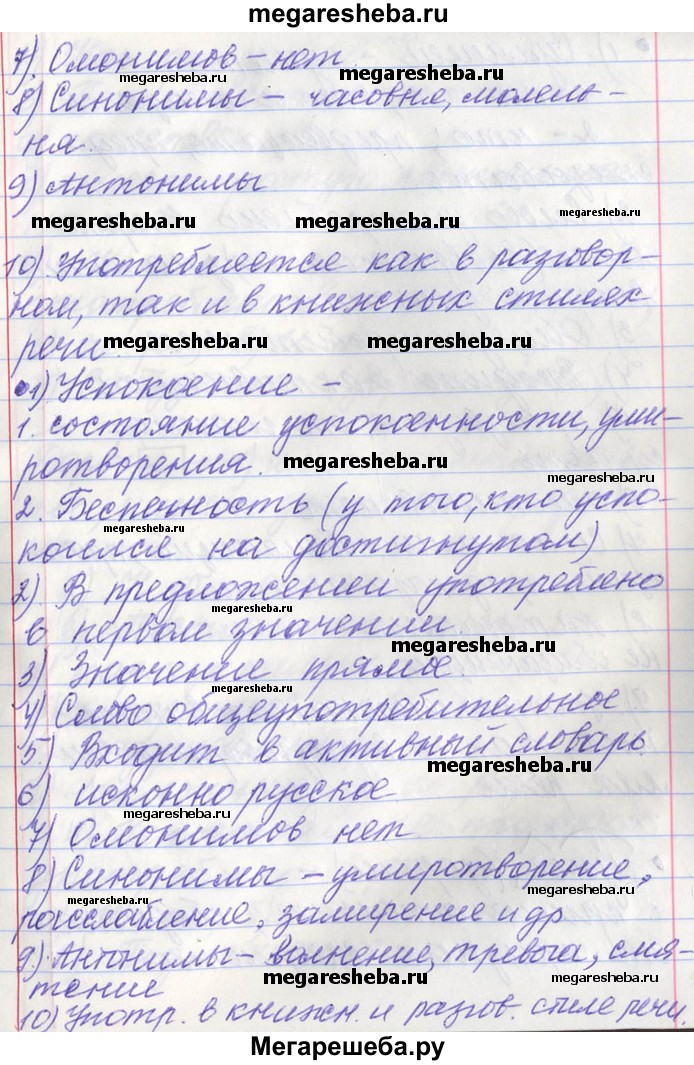 megaresheba.ru
7) Омонимов – нет
megaresheba.ru megaresheba.ru
8) Синонимы – часовня, молель-
ня.
megaresheba.ru
9) Антонимы
megaresheba.ru megaresheba.ru megaresheba.ru
10) Употребляется как в разговор-
ном, так и в книжных стилях
речи.
megaresheba.ru megaresheba.ru
1) Успокоение –
1. состояние успокоенности, уми-
ротворения.
megaresheba.ru
2. Беспечность (у того, кто успо-
megaresheba.ru
коился на достигнутом)
2) В предложении употреблено
megaresheba.ru
в первом значении
megaresheba.ru
3) Значение прямое.
megaresheba.ru
4) Слово общеупотребительное
5) Входит в активный словарь
megaresheba.ru
6) исконно русское
megaresheba.ru
7) Омонимов нет
8) Синонимы – умиротворение,
megaresheba.ru
расслабление, замирение и др
9) Антонимы – волнение, тревога, смя-
megaresheba.ru megaresheba.ru
тение
10) Употр. в книжн. и разгов. стиле речи.
Мегарешеба.ру